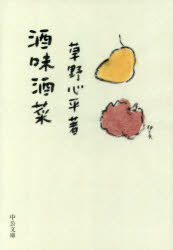 草野心平著
酒味酒菜
中公文庫